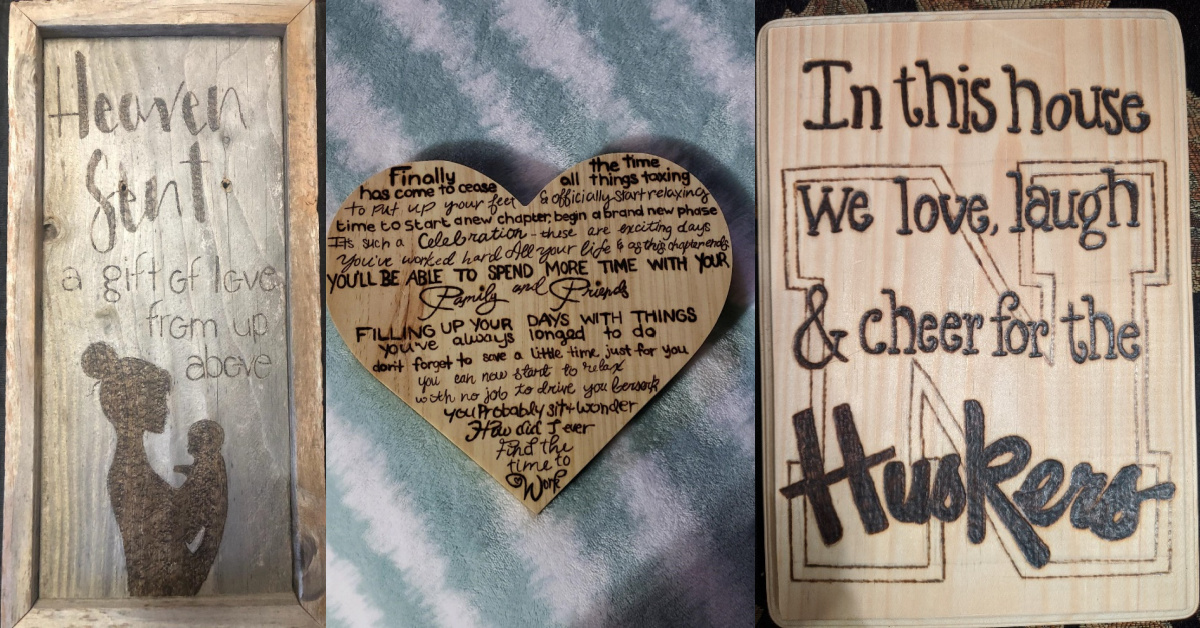 Heaven
Sent
a gift of love
from up
above
Finally the time
has come to cease all things taxing
to put up your feet & officially start relaxing
time to start a new chapter, begin a brand new phase
Its such a Celebration - these are exciting days
You've worked hard All your life & as this chapter ends
YOU'LL BE ABLE TO SPEND MORE TIME WITH YOUR
Family and Friends
FILLING UP YOUR DAYS WITH THINGS
You've always longed to do
don't forget to save a little time just for you
you can now start to relax
with no job to drive you berserk
you Probably sit & wonder
How did I ever
Find the
time to
Work
In this house
we love, laugh
& cheer for the
Huskers
N